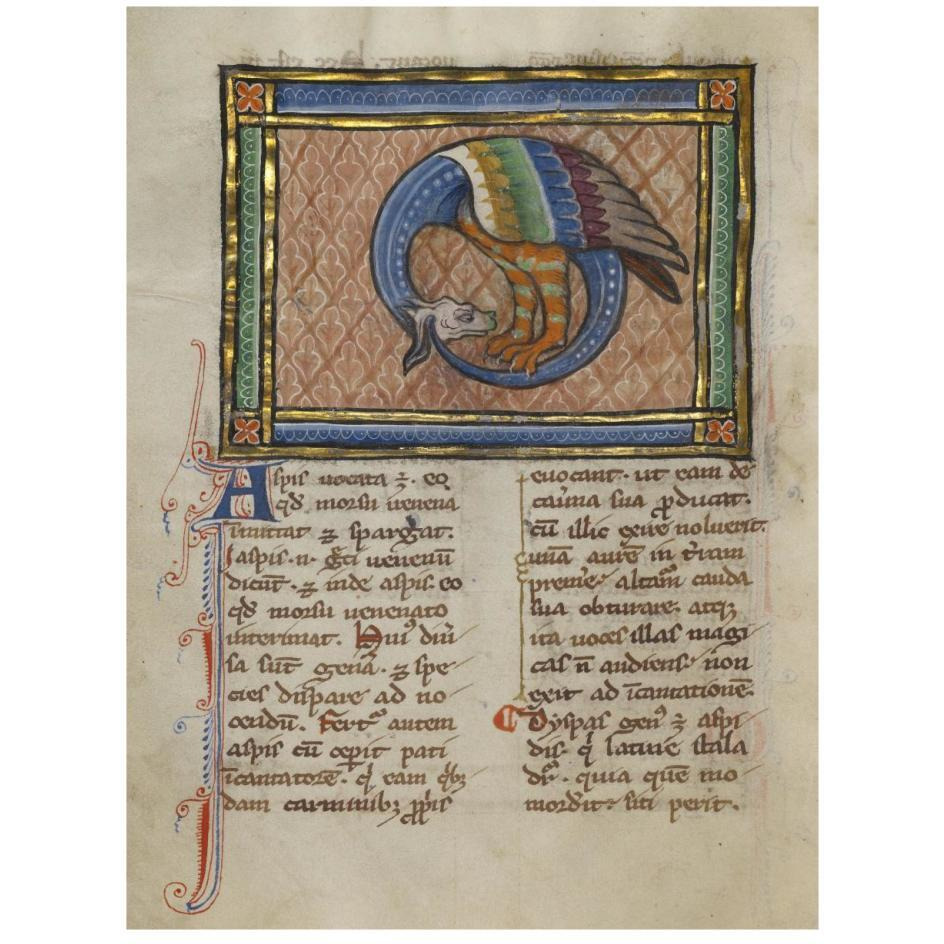 Aspis uocata ē. eo
qd morsu uenena
inmittat ⁊ spargat.
Iaspis .n. G̃ci uenenū
dicūt. ⁊ inde aspis. eo
qd morsu uenenato
interimat. Huiꝰ diu̾
sa sūt gen̾a. ⁊ spe
cies dispare ad no
cendū. Fertᷣ autem
aspis cū ceꝑit pati
īcantatorē. qͥ eam qͥbꝫ
dam carminibꝫ pp̃iis
euocant. ut eam de
cau̾na sua ꝓducat.
cū illic exire noluerit.
unā aurē in t̾ram
premit. altam̄ cauda
sua obturare. atqꝫ
ita uoces illas magi
cas n̄ audiens. non
exit ad īcantationē.
Dyspas genꝰ ē aspi
dis. qͥ latine sitala
dr̄. quia quē mo
mordit. siti perit.